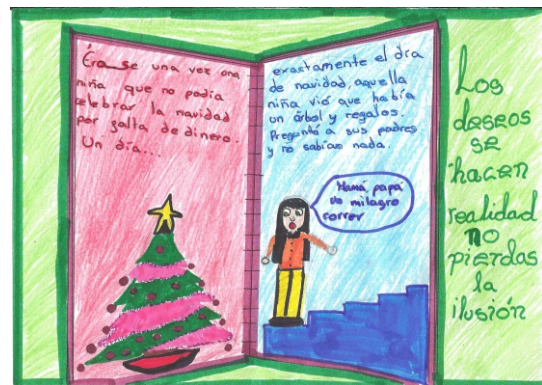 Érase una vez una
niña que no podía
celebrar la navidad
por falta de dinero.
Un día...
exactamente el día
de navidad, aquella
niña vió que había
un árbol y regalos.
Preguntó a sus padres
y no sabían nada.
Mamá papá
un milagro
correr
Los
deseos
se
hacen
realidad
no
pierdas
la
ilusión